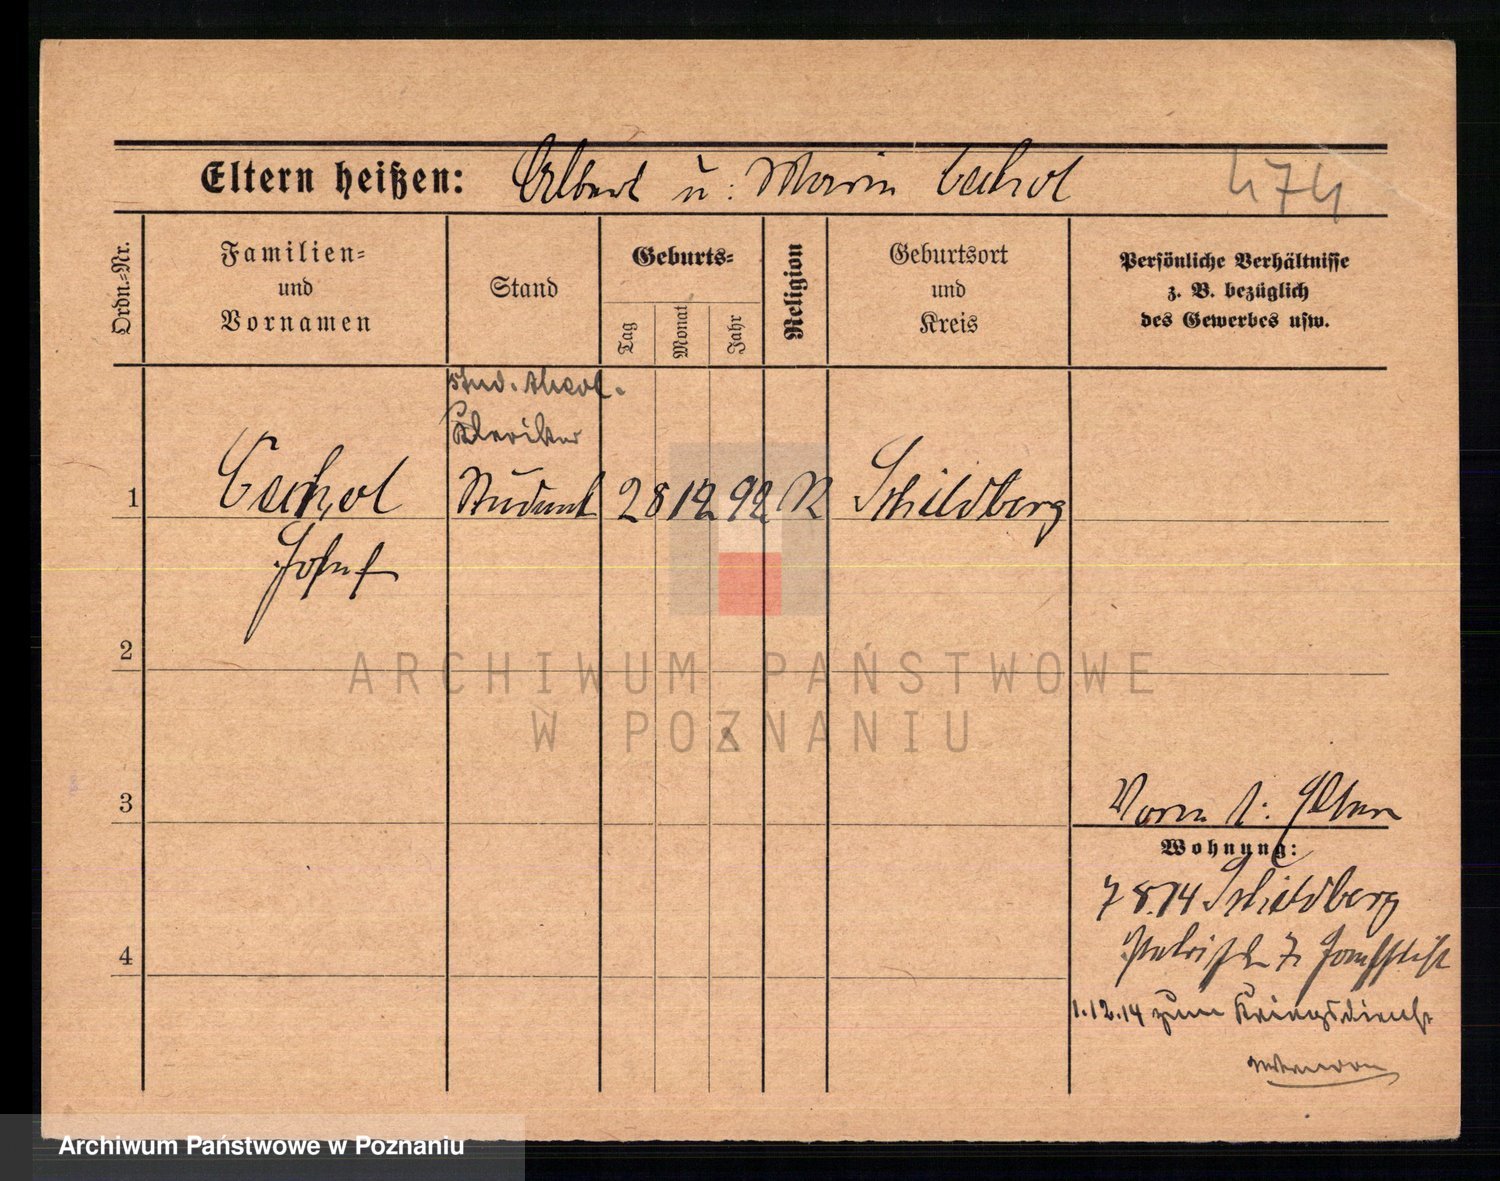 Eltern heißen: Albert u: Marie Cechol
474
Ordn.=Nr.
Familien=
und
Vornamen
Stand
Geburts=
Tag
Monat
Jahr
Religion
Geburtsort
und
Kreis
Persönliche Verhältnisse
z. B. bezüglich
des Gewerbes usw.
stud. theol.
Kleriker
1 Cechol Student 28 12 92 K Schildberg
Josef
2
ARCHIWUM PAŃSTWOWE
W POZNANIU
3
Wohnung:
7 8.14 Schildberg
4
1.12.14 zum Kriegsdienst
Archiwum Państwowe w Poznaniu